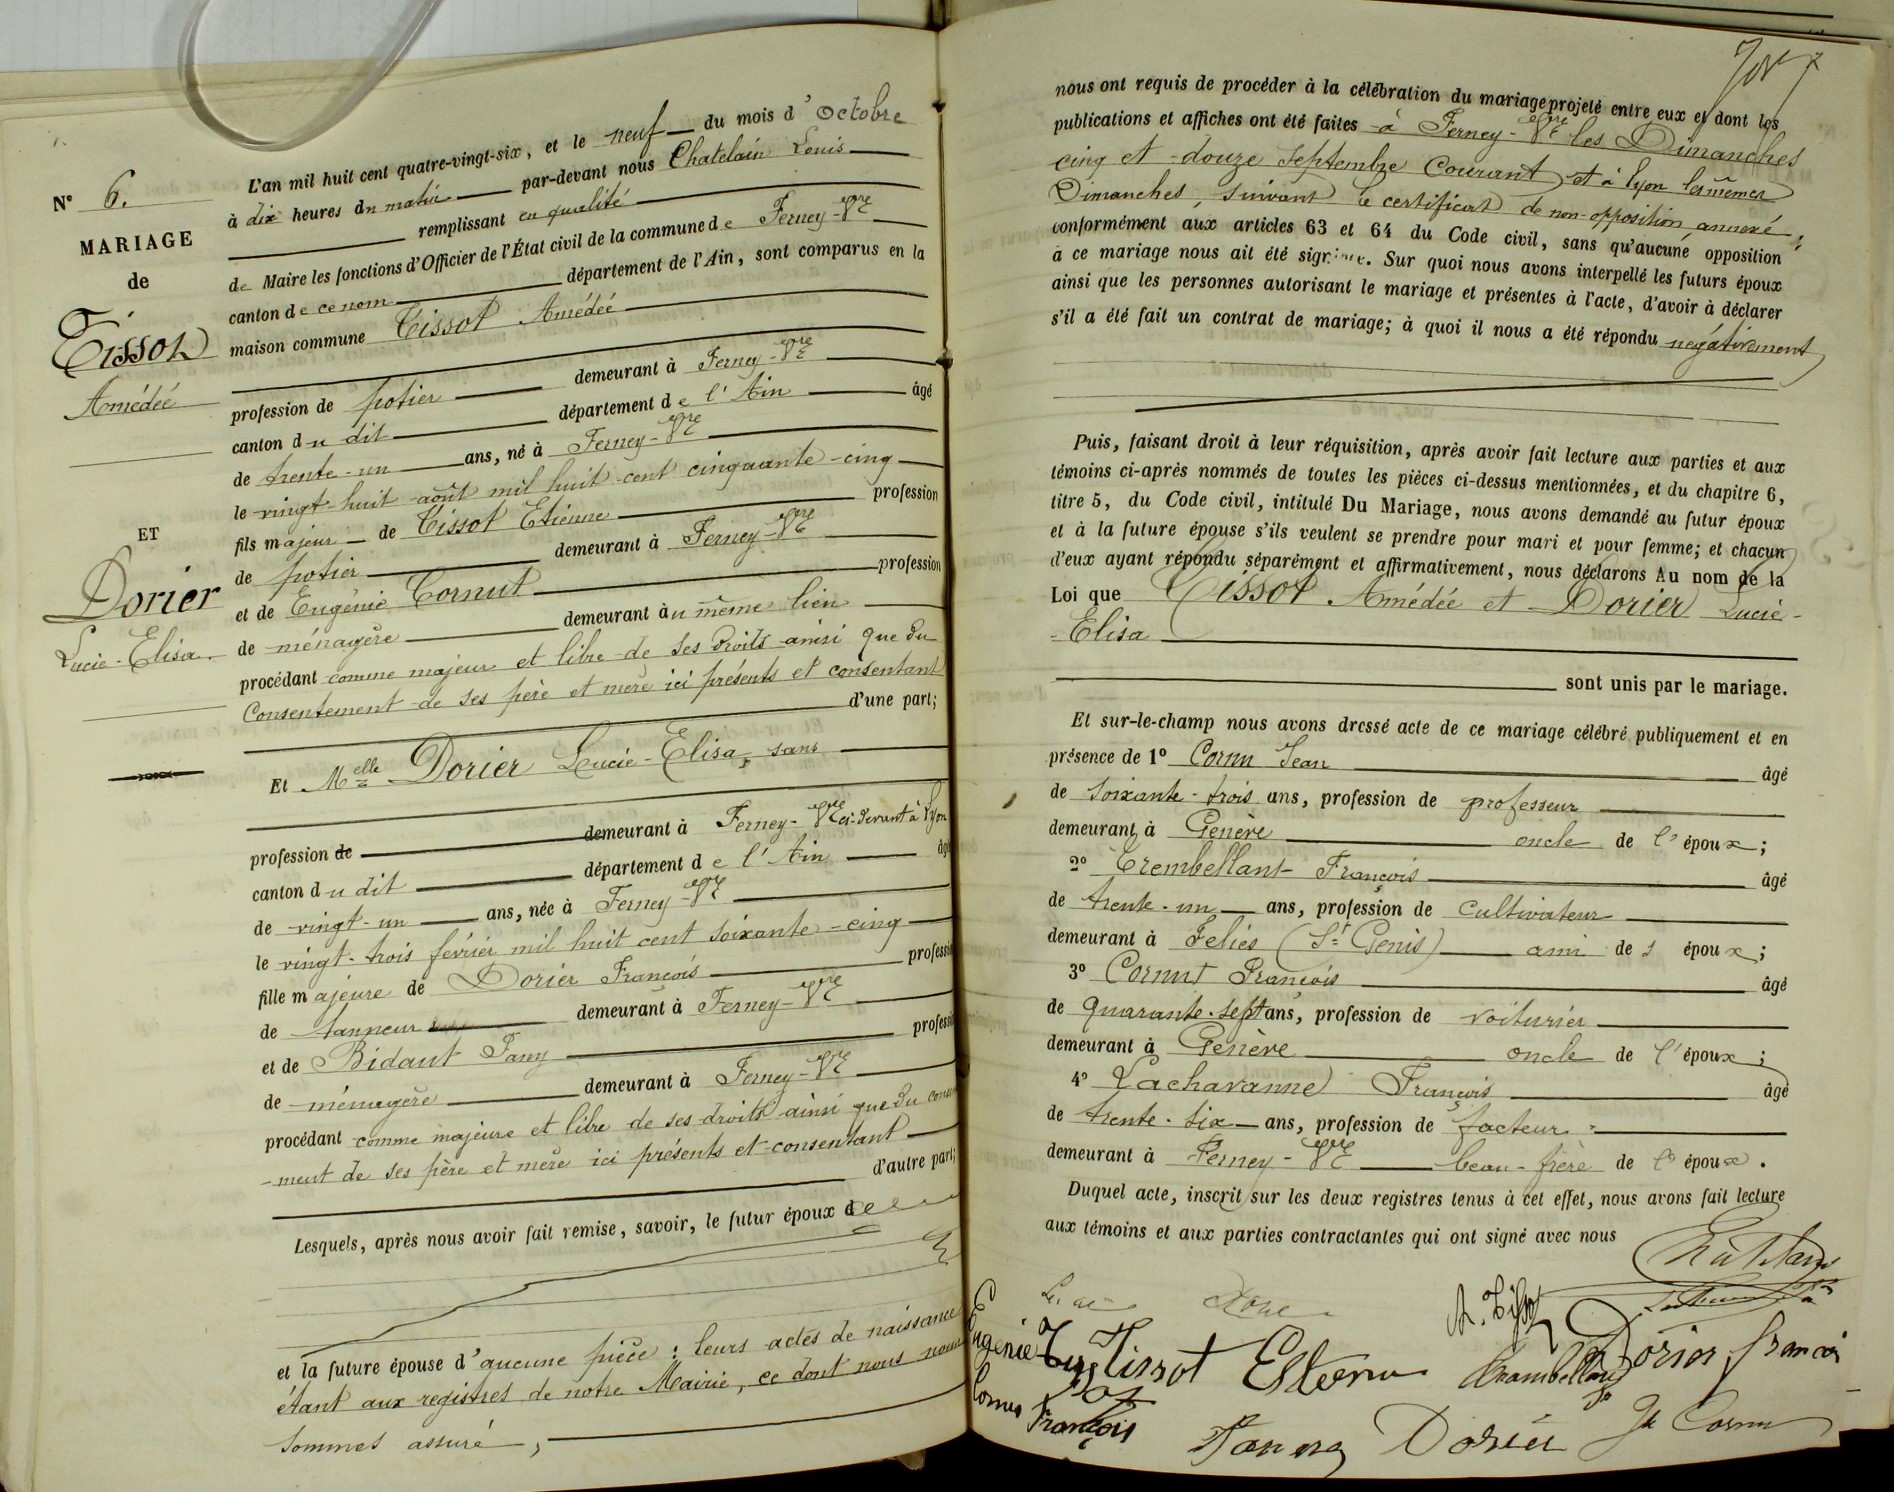 N° 6.
MARIAGE
de
Tissot
Amédée
ET
Dorier
Lucie-Elisa.
L'an mil huit cent quatre-vingt-six, et le neuf du mois d'Octobre
à dix heures du matin par-devant nous Chatelain Louis
remplissant en qualité
de Maire les fonctions d'Officier de l'État civil de la commune de Ferney-Vre
canton de ce nom département de l'Ain, sont comparus en la
maison commune Tissot Amédée
profession de potier demeurant à Ferney-Vre
canton du dit département de l'Ain âgé
de trente-un ans, né à Ferney-Vre
le vingt-huit août mil huit cent cinquante-cinq
fils majeur de Tissot Etienne profession
de potier demeurant à Ferney-Vre
et de Eugénie Cornut profession
de ménagère demeurant au même lieu
procédant comme majeur et libre de ses droits ainsi que du
Consentement de ses père et mère ici présents et consentant
d'une part;
Et Melle Dorier Lucie-Elisa, sans
profession de demeurant à Ferney-Vre ci-devant à Lyon
canton du dit département de l'Ain âgé
de vingt-un ans, née à Ferney-Vre
le vingt-trois février mil huit cent soixante-cinq
fille majeure de Dorier François profession
de tanneur demeurant à Ferney-Vre
et de Bidaut Fany profession
de ménagère demeurant à Ferney-Vre
procédant comme majeure et libre de ses droits ainsi que du conse
-ment de ses père et mère ici présents et consentant
d'autre part;
Lesquels, après nous avoir fait remise, savoir, le futur époux de
et la future épouse d'aucune pièce : leurs actes de naissance
étant aux registres de notre Mairie, ce dont nous nous
sommes assuré,
nous ont requis de procéder à la célébration du mariage projeté entre eux et dont les
publications et affiches ont été faites à Ferney-Vre les Dimanches
cinq et douze Septembre Courant et à Lyon les mêmes
Dimanches, suivant le certificat de non-opposition annexé,
conformément aux articles 63 et 64 du Code civil, sans qu'aucune opposition
à ce mariage nous ait été signifiée. Sur quoi nous avons interpellé les futurs époux
ainsi que les personnes autorisant le mariage et présentes à l'acte, d'avoir à déclarer
s'il a été fait un contrat de mariage; à quoi il nous a été répondu négativement
Puis, faisant droit à leur réquisition, après avoir fait lecture aux parties et aux
témoins ci-après nommés de toutes les pièces ci-dessus mentionnées, et du chapitre 6,
titre 5, du Code civil, intitulé Du Mariage, nous avons demandé au futur époux
et à la future épouse s'ils veulent se prendre pour mari et pour femme; et chacun
d'eux ayant répondu séparément et affirmativement, nous déclarons Au nom de la
Loi que Tissot Amédée et Dorier Lucie-
-Elisa
sont unis par le mariage.
Et sur-le-champ nous avons dressé acte de ce mariage célébré publiquement et en
présence de 1° Cornu Jean âgé
de soixante-trois ans, profession de professeur
demeurant à Genève oncle de l'époux;
2° Trembellant François âgé
de trente-un ans, profession de cultivateur
demeurant à Feliés (St Genis) ami des époux;
3° Cornut François âgé
de quarante-sept ans, profession de voiturier
demeurant à Genève oncle de l'époux;
4° Lacharanne François âgé
de trente-six ans, profession de facteur
demeurant à Ferney-Vre beau-frère de l'époux.
Duquel acte, inscrit sur les deux registres tenus à cet effet, nous avons fait lecture
aux témoins et aux parties contractantes qui ont signé avec nous
A. Tissot
Eugénie Tissot
Dorier françois
Cornut François
Dorier
Jn Cornu